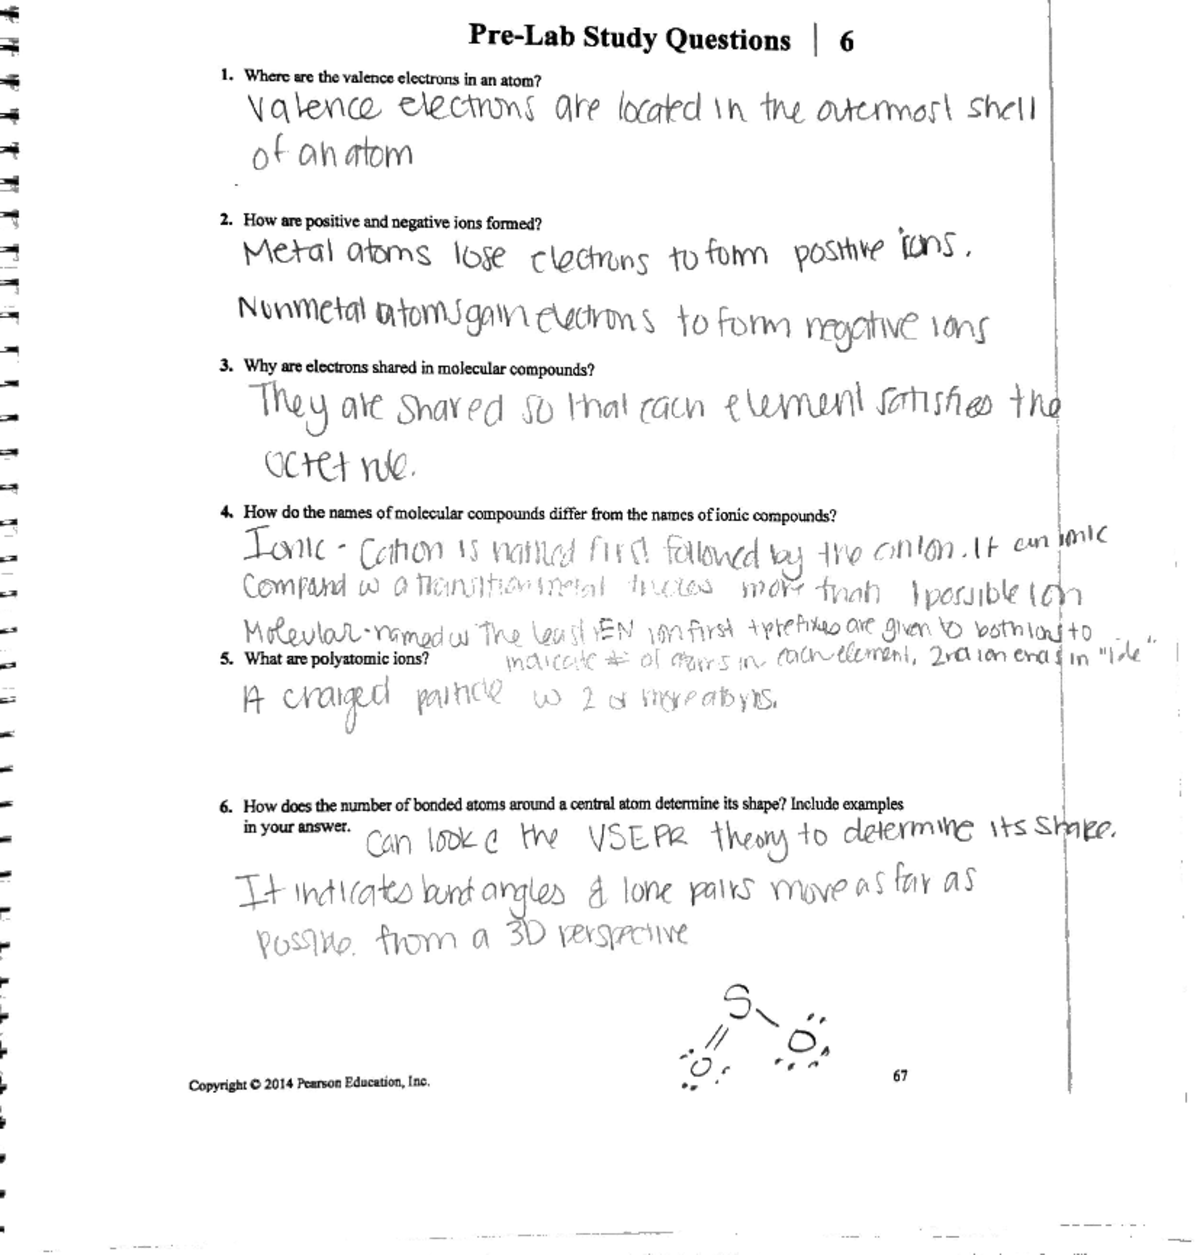 Pre-Lab Study Questions | 6
1. Where are the valence electrons in an atom?
Valence electrons are located in the outermost shell
of an atom
2. How are positive and negative ions formed?
Metal atoms lose electrons to form positive ions.
Nonmetal atoms gain electrons to form negative ions
3. Why are electrons shared in molecular compounds?
They are shared so that each element satisfies the
octet rule.
4. How do the names of molecular compounds differ from the names of ionic compounds?
Ionic - Cation is named first followed by the anion. If an ionic
Compand w a transition metal more than 1 possible ion
Molecular - named w The least EN ion first + prefixes are given to both ions to
5. What are polyatomic ions?
indicate # of atoms in each element, 2nd ion ends in "ide"
A charged particle w 2 or more atoms.
6. How does the number of bonded atoms around a central atom determine its shape? Include examples
in your answer.
Can look @ the VSEPR theory to determine its shape.
It indicates bond angles & lone pairs move as far as
possible. from a 3D perspective
S
O
O
Copyright © 2014 Pearson Education, Inc.
67